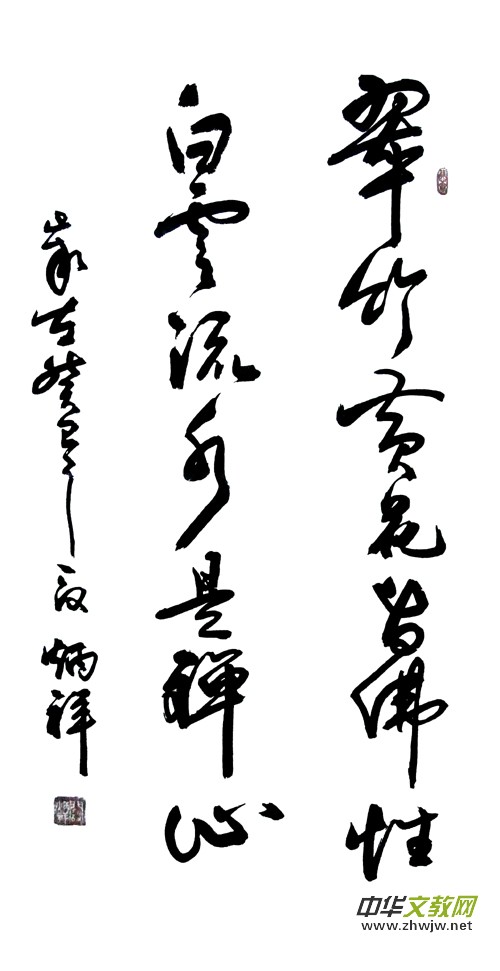 翠竹黄花皆佛性
白雲流水是禪心
歲在癸巳年 炳祥
中华文教网
www.zhwjw.net